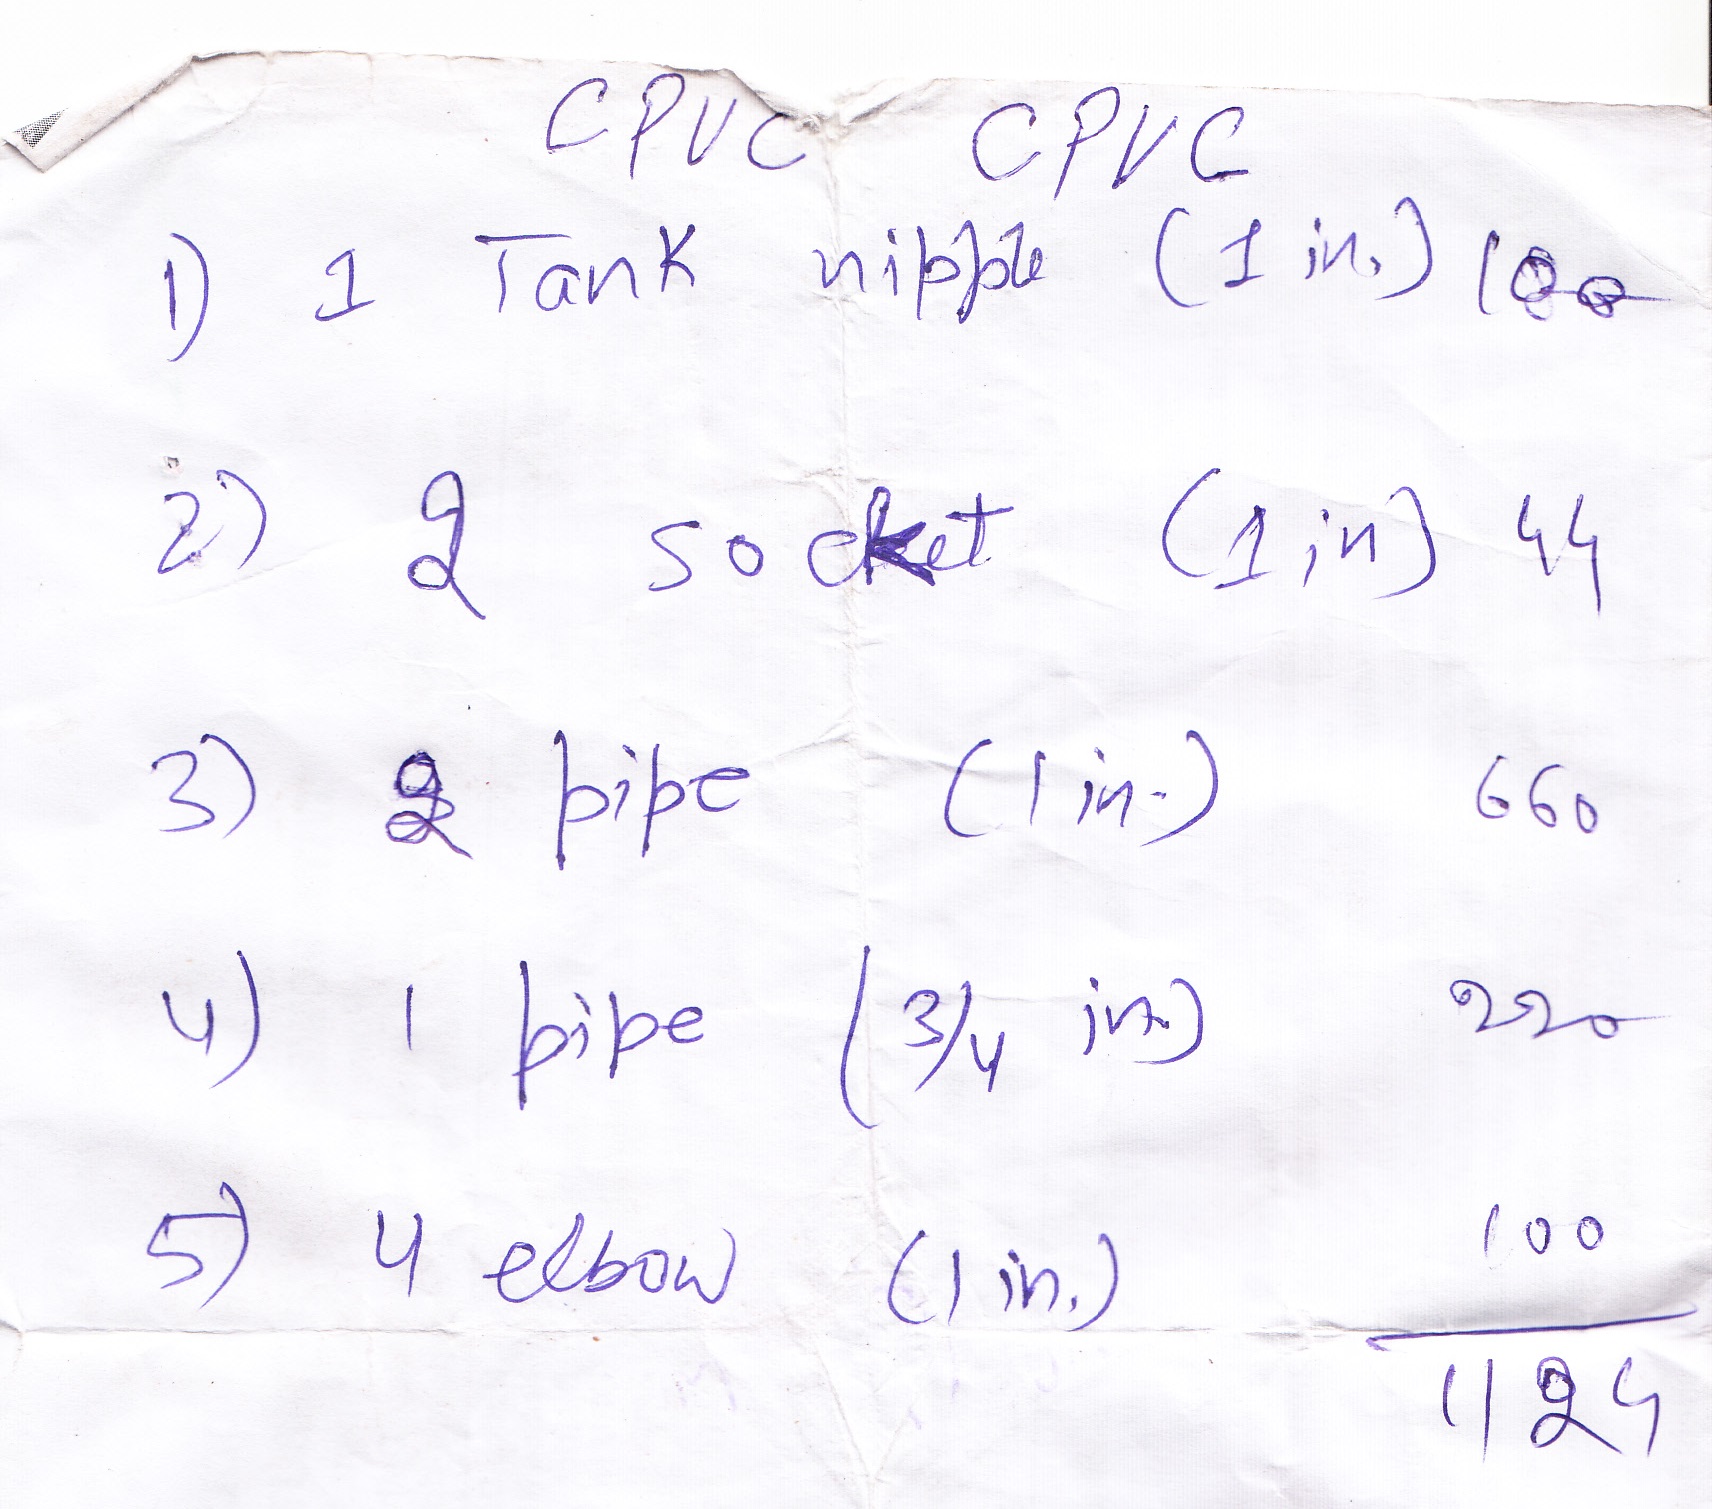 CPVC CPVC
1) 1 Tank nipple (1 in.) 100
2) 2 socket (1 in) 44
3) 2 pipe (1 in.) 660
4) 1 pipe (3/4 in.) 220
5) 4 elbow (1 in.) 100
1124